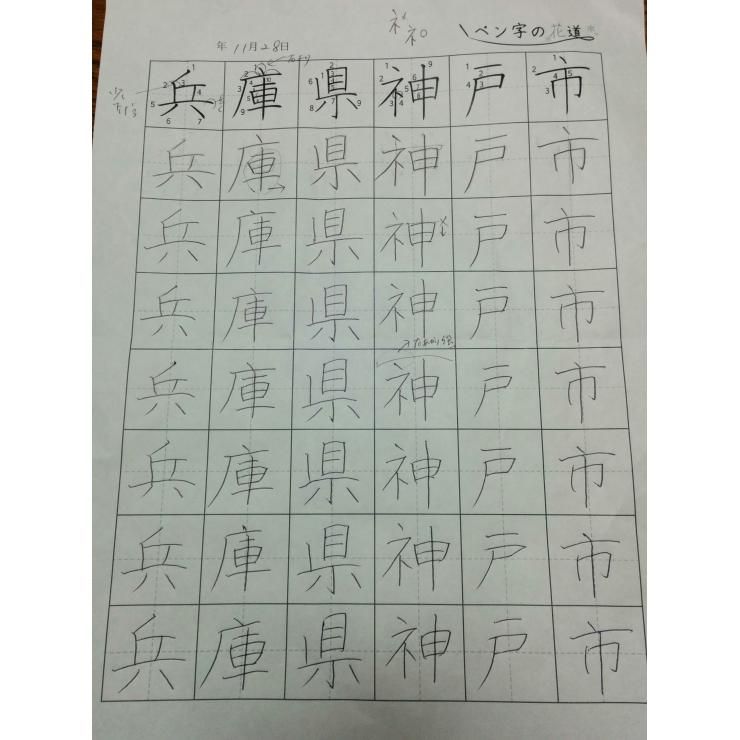 ペン字の花道
年 11月28日
兵庫県神戸市
兵庫県神戸市
兵庫県神戸市
兵庫県神戸市
兵庫県神戸市
兵庫県神戸市
兵庫県神戸市
兵庫県神戸市